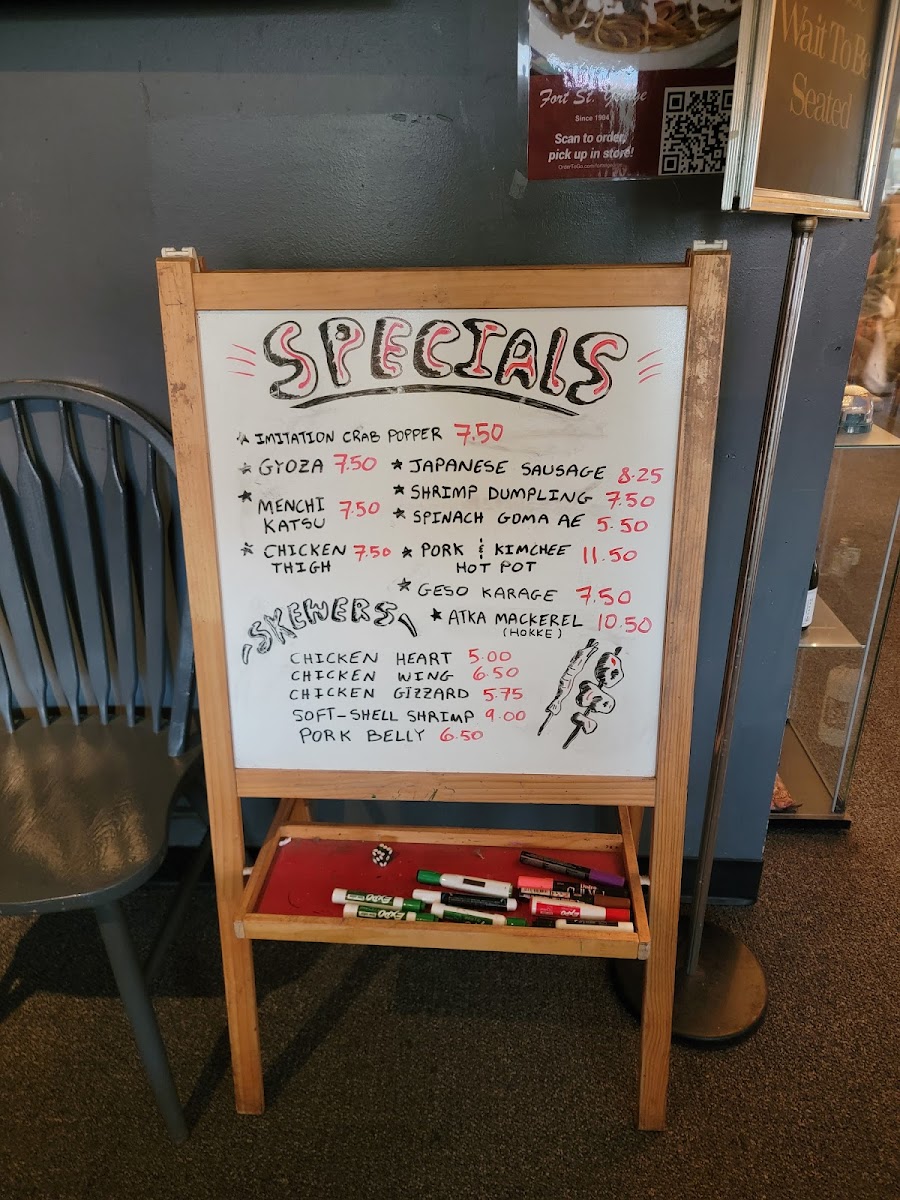 Fort St. George
Since 1984
Scan to order,
pick up in store!
Wait To Be
Seated
SPECIALS
IMITATION CRAB POPPER 7.50
GYOZA 7.50
MENCHI
KATSU 7.50
CHICKEN
THIGH 7.50
JAPANESE SAUSAGE 8.25
SHRIMP DUMPLING 7.50
SPINACH GOMA AE 5.50
PORK & KIMCHEE 11.50
HOT POT
GESO KARAGE 7.50
ATKA MACKEREL 10.50
(HOKKE)
SKEWERS
CHICKEN HEART 5.00
CHICKEN WING 6.50
CHICKEN GIZZARD 5.75
SOFT-SHELL SHRIMP 9.00
PORK BELLY 6.50
EXPO
EXPO